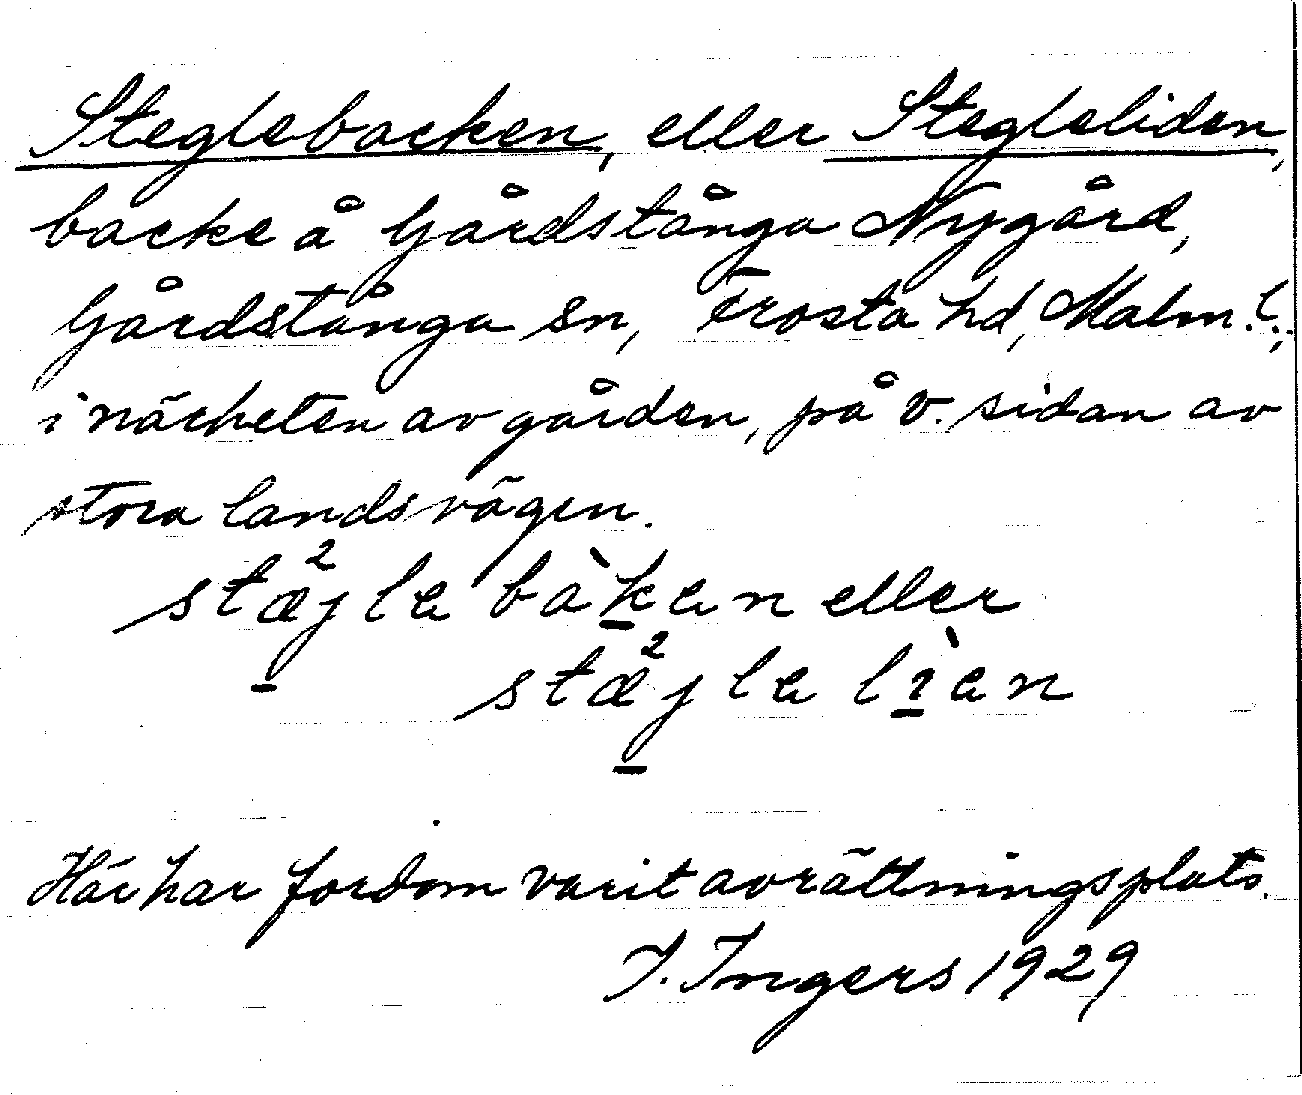 Steglebacken, eller Stegleliden,
backe å Gårdstånga Nygård,
Gårdstånga sn, Frosta hd, Malm. l.;
i närheten av gården, på v. sidan av
stora landsvägen.
stæ²jlebàken eller
stæ²jlelìen
Här har fordom varit avrättningsplats.
I. Ingers 1929